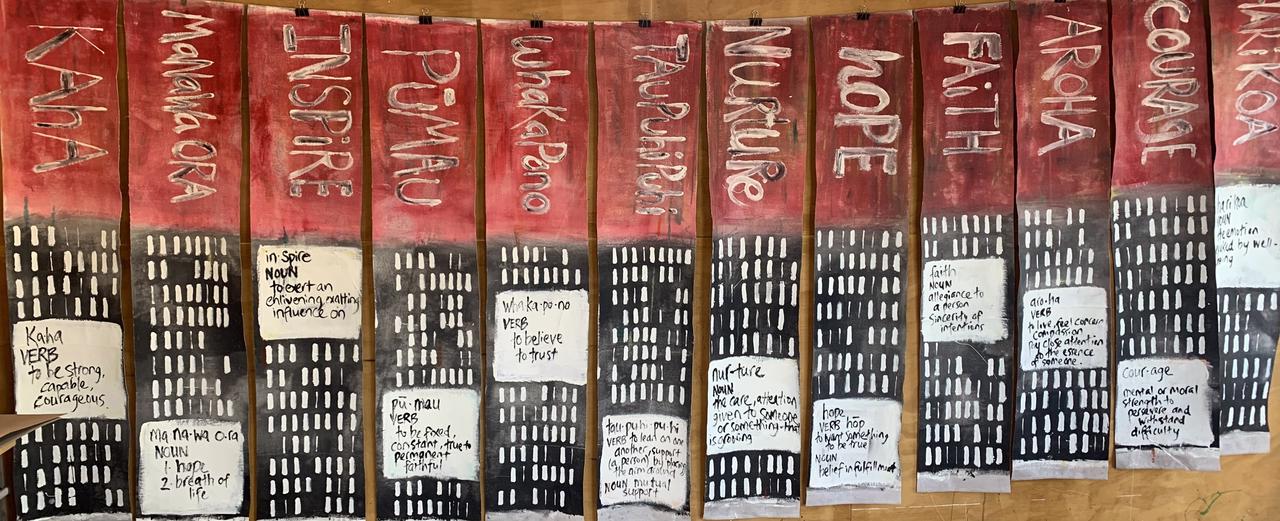 KAHA
Kaha
VERB
to be strong,
capable,
courageous.
MaNaWa ORA
Ma·na·wa o·ra
NOUN
1. hope
2. breath of
life
INSPIRE
in·spire
NOUN
to exert an
enlivening, exalting
influence on
PŪMAU
pū·mau
VERB
to be fixed,
constant, true to
permanent
faithful
WhaKaPono
wha·ka·po·no
VERB
to believe
to trust
TAUPuhiPuhi
tau·pu·hi·pu·hi
VERB to lead on one
another, support
(a person) by placing
the arm around
NOUN mutual
support
NURTURE
nur·ture
NOUN
the care, attention
given to someone
or something that
is growing
hOPE
hope
VERB hōp
to want something
to be true
NOUN
belief in fulfillment
FAiTH
faith
NOUN
allegiance to
a person
sincerity of
intentions
AROHA
aro·ha
VERB
to love, feel concern
compassion
pay close attention
to the essence
of someone.
COURAGE
cour·age
mental or moral
strength to
persevere and
withstand
difficulty
HARIKOA
harikoa
NOUN
emotion
by well-